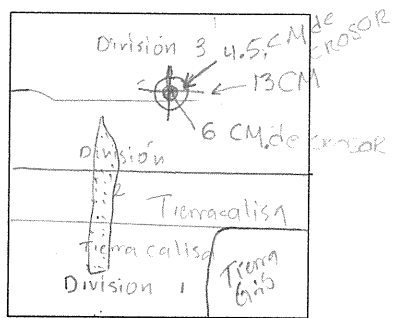 División 3
4.5 CM de
CROSOR
13 CM
6 CM de crosor
División
2
Tierracalisa
Tierra calisa
División 1
Tierra
Gris